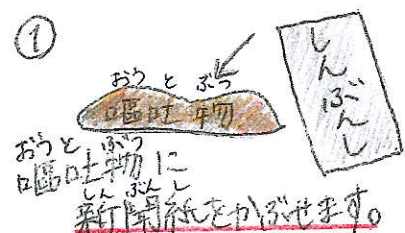 ①
おうとぶつ
嘔吐物
しんぶんし
おうとぶつ
嘔吐物に
しんぶんし
新聞紙をかぶせます。